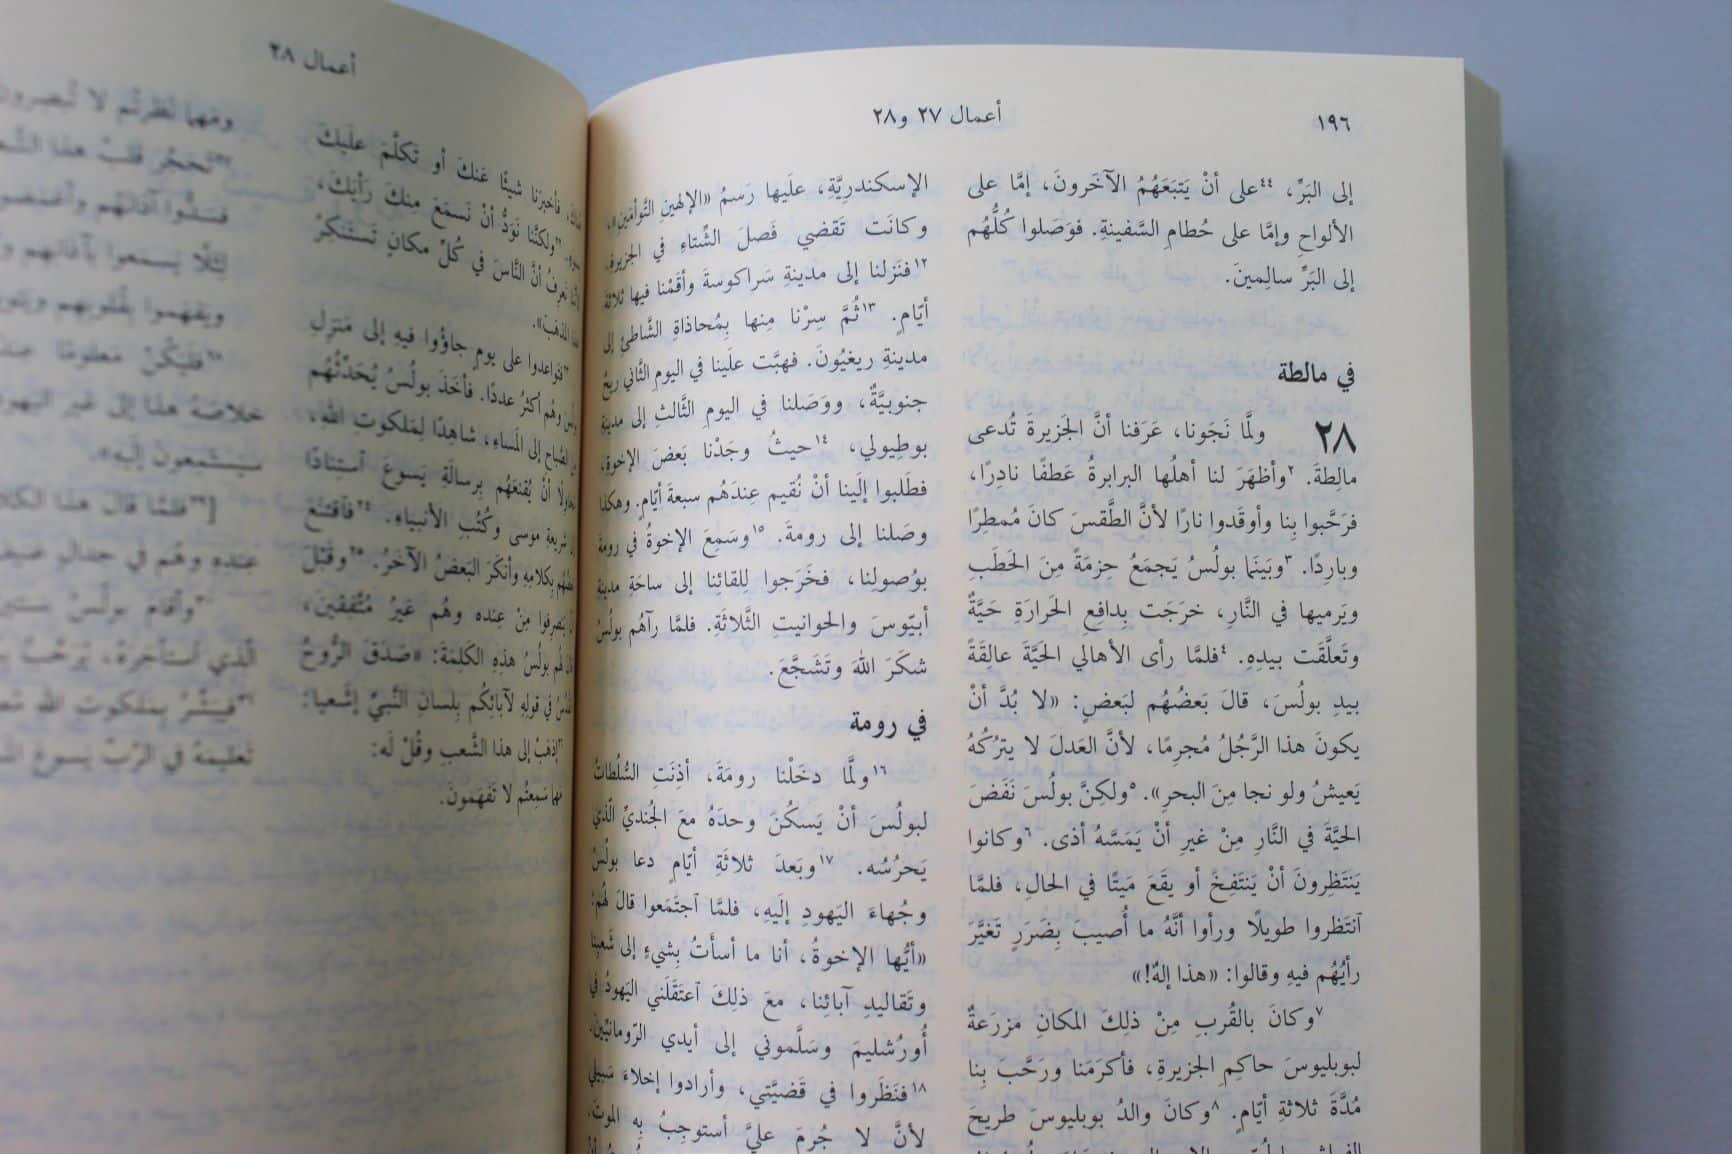 ١٩٦
أعمال ٢٧ و٢٨
إلى البَرِّ، ٤٤على أنْ يَتبَعَهُمُ الآخَرونَ، إمَّا على
الألواحِ وإمَّا على حُطامِ السَّفينةِ. فوَصَلوا كُلُّهُم
إلى البَرِّ سالِمينَ.
في مالطة
٢٨ ولمَّا نَجَونا، عَرَفنا أنَّ الجَزيرةَ تُدعى
مالِطةَ. ٢وأظهَرَ لنا أهلُها البرابرةُ عَطفًا نادِرًا،
فرَحَّبوا بِنا وأوقَدوا نارًا لأنَّ الطَّقسَ كانَ مُمطِرًا
وبارِدًا. ٣وبَينَما بولُسُ يَجمَعُ حِزمَةً مِنَ الحَطَبِ
ويَرميها في النَّارِ، خرَجَت بِدافِعِ الحَرارَةِ حَيَّةٌ
وتَعلَّقَت بيدِهِ. ٤فلمَّا رأى الأهالي الحَيَّةَ عالِقَةً
بيدِ بولُسَ، قالَ بَعضُهُم لبَعضٍ: «لا بُدَّ أنْ
يكونَ هذا الرَّجُلُ مُجرِمًا، لأنَّ العَدلَ لا يَترُكُهُ
يَعيشُ ولو نجا مِنَ البحرِ». ٥ولكِنَّ بولُسَ نَفَضَ
الحَيَّةَ في النَّارِ مِنْ غَيرِ أنْ يَمَسَّهُ أذى. ٦وكانوا
يَنتَظِرونَ أنْ يَنتَفِخَ أو يقَعَ مَيتًا في الحالِ، فلمَّا
آنتَظَروا طويلًا ورأوا أنَّهُ ما أُصيبَ بِضَرَرٍ تَغيَّرَ
رأيُهُم فيهِ وقالوا: «هذا إلهٌ!»
٧وكانَ بالقُربِ مِنْ ذلِكَ المكانِ مَزرَعةٌ
لبوبليوسَ حاكِمِ الجزيرةِ، فأكرَمَنا ورَحَّبَ بِنا
مُدَّةَ ثلاثةِ أيّامٍ. ٨وكانَ والدُ بوبليوسَ طريحَ
الإسكندريَّةِ، علَيها رَسمُ «الإلهينِ التَّوأمَينِ»،
وكانَت تَقضي فَصلَ الشِّتاءِ في الجزيرةِ.
١٢فنَزَلنا إلى مدينةِ سَراكوسةَ وأقَمْنا فيها ثلاثةَ
أيّامٍ. ١٣ثُمَّ سِرْنا مِنها بِمُحاذاةِ الشَّاطئِ إلى
مدينةِ ريغيُونَ. فهبَّت علَينا في اليومِ الثَّاني ريحٌ
جنوبيَّةٌ، ووَصَلنا في اليومِ الثَّالثِ إلى مدينةِ
بوطِيولي، ١٤حيثُ وجَدْنا بَعضَ الإخوةِ،
فطَلَبوا إلَينا أنْ نُقيم عِندَهُم سبعةَ أيّامٍ. وهكذا
وصَلنا إلى رومةَ. ١٥وسَمِعَ الإخوةُ في رومةَ
بوُصولِنا، فخَرَجوا لِلقائِنا إلى ساحَةِ مدينةِ
أبيّوسَ والحوانيتِ الثَّلاثةِ. فلمَّا رآهُم بولُسُ
شكَرَ اللهَ وتَشَجَّعَ.
في رومة
١٦ولَمَّا دخَلْنا رومَةَ، أذِنَتِ السُّلُطاتُ
لبولُسَ أنْ يَسكُنَ وحدَهُ معَ الجُنديِّ الّذي
يَحرُسُه. ١٧وبَعدَ ثلاثَةِ أيّامٍ دعا بولُسُ
وجُهاءَ اليَهودِ إلَيهِ، فلمَّا آجتَمَعوا قالَ لهُم:
«أيُّها الإخوةُ، أنا ما أسأتُ بِشيءٍ إلى شَعبِنا
وتَقاليدِ آبائِنا، معَ ذلِكَ آعتَقَلَني اليَهودُ في
أُورُشليمَ وسَلَّموني إلى أيدي الرّومانيِّينَ.
١٨فنَظَروا في قَضيَّتي، وأرادوا إخلاءَ سَبيلي
لأنَّ لا جُرمَ عليَّ أستوجِبُ بِه الموتَ.
أعمال ٢٨
فأخبرَنا شيئًا عَنكَ أو تَكلَّمَ علَيكَ
٢٢ولكنَّنا نَوَدُّ أنْ نَسمَعَ مِنكَ رَأيَكَ،
نَعرِفُ أنَّ النَّاسَ في كُلِّ مكانٍ تَستَنكِرُ
المذهبَ».
٢٣فتَواعدوا على يومٍ جاؤُوا فيهِ إلى مَنزِلِ
وهُم أكثرُ عددًا. فأخَذَ بولُسُ يُحَدِّثُهُم
الصَّباحِ إلى المَساءِ، شاهِدًا لِمَلكوتِ اللهِ،
أنْ يُقنِعَهُم بِرسالةِ يَسوعَ آستِنادًا
شريعةِ موسى وكُتُبِ الأنبياءِ. ٢٤فآقتَنَعَ
بكلامِهِ وأنكَرَ البَعضُ الآخَرُ. ٢٥وقَبْلَ
يَنصرِفوا مِنْ عِندِه وهُم غَيرُ مُتَّفِقينَ،
لهُم بولُسُ هذِهِ الكَلِمَةَ: «صَدَقَ الرُّوحُ
في قولِهِ لآبائِكُم بِلِسانِ النَّبيِّ إشَعيا:
٢٦إذهَبْ إلى هذا الشَّعبِ وقُلْ لَه:
مهما سَمِعتُم لا تَفهَمونَ.
ومَهما نَظَرتُم لا تُبصِرونَ
٢٧تَحَجَّرَ قَلبُ هذا
فسَدُّوا آذانَهُم وأغمَضوا
لِئَلّا يَسمَعوا بآذانِهِم
ويَفهَموا بِقُلوبِهِم
٢٨فليَكُنْ مَعلومًا
خلاصَهُ هذا إلى غَيرِ اليَهودِ
سيَستَمِعونَ إلَيهِ».
[٢٩فلمَّا قالَ هذا الكلامَ
عِندِه وهُم في جِدالٍ
٣٠وأقامَ بولُسُ
الّذي آستأجَرَهُ، يُرَحِّبُ
٣١فيُبَشِّرُ بِمَلكوتِ اللهِ
تَعليمَهُ في الرّبِّ يَسوعَ